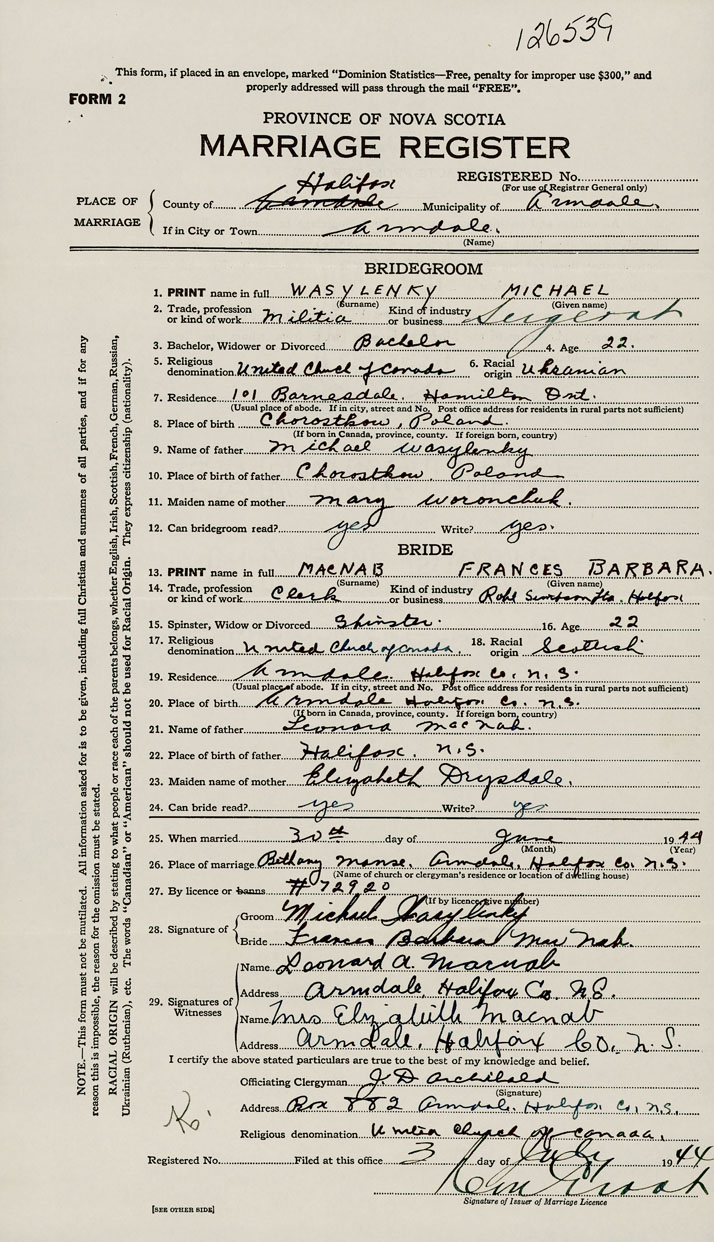 126539
This form, if placed in an envelope, marked "Dominion Statistics—Free, penalty for improper use $300," and
properly addressed will pass through the mail "FREE".
FORM 2
PROVINCE OF NOVA SCOTIA
MARRIAGE REGISTER
REGISTERED No.
(For use of Registrar General only)
PLACE OF MARRIAGE
County of Armdale Halifax Municipality of Armdale.
If in City or Town Armdale.
(Name)
BRIDEGROOM
1. PRINT name in full WASYLENKY MICHAEL
(Surname) (Given name)
2. Trade, profession or kind of work Militia Kind of industry or business Sergeant
3. Bachelor, Widower or Divorced Bachelor 4. Age 22.
5. Religious denomination United Church of Canada 6. Racial origin Ukranian
7. Residence 101 Barnesdale. Hamilton Ont.
(Usual place of abode. If in city, street and No. Post office address for residents in rural parts not sufficient)
8. Place of birth Chorostkow, Poland.
(If born in Canada, province, county. If foreign born, country)
9. Name of father Michael Wasylenky
10. Place of birth of father Chorostkow, Poland
11. Maiden name of mother Mary Woronchuk.
12. Can bridegroom read? yes Write? yes.
BRIDE
13. PRINT name in full MACNAB FRANCES BARBARA.
(Surname) (Given name)
14. Trade, profession or kind of work Clerk Kind of industry or business Robt Simpson Halifax
15. Spinster, Widow or Divorced Spinster. 16. Age 22
17. Religious denomination United Church of Canada. 18. Racial origin Scottish
19. Residence Armdale. Halifax Co. N.S.
(Usual place of abode. If in city, street and No. Post office address for residents in rural parts not sufficient)
20. Place of birth Armdale Halifax Co. N.S.
(If born in Canada, province, county. If foreign born, country)
21. Name of father MacNab.
22. Place of birth of father Halifax. N.S.
23. Maiden name of mother Elizabeth Drysdale.
24. Can bride read? yes Write? yes.
25. When married 30th day of June 1944
(Month) (Year)
26. Place of marriage Bethany Manse. Armdale, Halifax Co. N.S.
(Name of church or clergyman's residence or location of dwelling house)
27. By licence or banns #72920
(If by licence give number)
28. Signature of
Groom Michael Wasylenky
Bride Frances Barbara MacNab.
29. Signatures of Witnesses
Name Leonard A. Macnab
Address Armdale, Halifax Co. N.S.
Name Mrs Elizabeth Macnab
Address Armdale, Halifax Co. N.S.
I certify the above stated particulars are true to the best of my knowledge and belief.
Officiating Clergyman J. D Archibald
(Signature)
Address Box 882 Armdale. Halifax Co. N.S.
Religious denomination United Church of Canada.
Registered No. Filed at this office 3 day of July 1944
Signature of Issuer of Marriage Licence
[SEE OTHER SIDE]
NOTE.—This form must not be mutilated. All information asked for is to be given, including full Christian and surnames of all parties, and if for any
reason this is impossible, the reason for the omission must be stated.
RACIAL ORIGIN will be described by stating to what people or race each of the parents belongs, whether English, Irish, Scottish, French, German, Russian,
Ukrainian (Ruthenian), etc. The words "Canadian" or "American" should not be used for Racial Origin. They express citizenship (nationality).